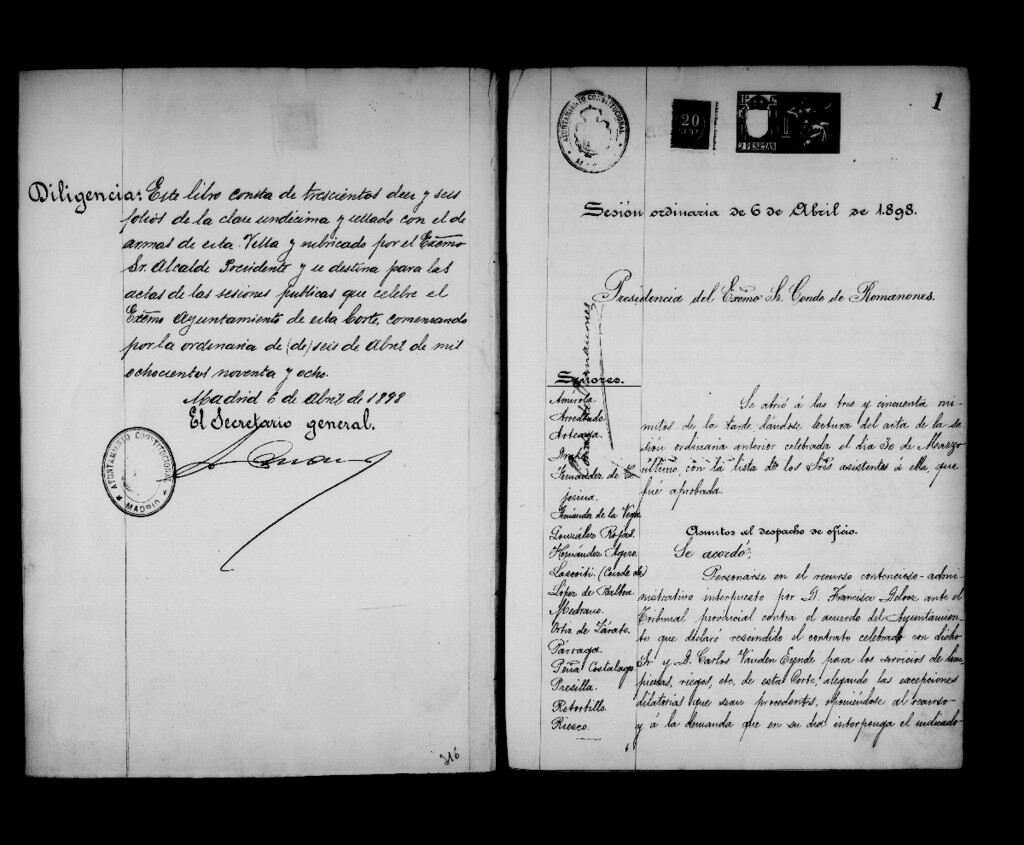 Diligencia: Este libro consta de trescientos diez y seis
folios de la clase undécima y sellado con el de
armas de esta Villa y rubricado por el Excmo
Sr. Alcalde Presidente y se destina para las
actas de las sesiones publicas que celebre el
Excmo Ayuntamiento de esta Corte, comenzando
por la ordinaria de (de) seis de Abril de mil
ochocientos noventa y ocho.
Madrid 6 de Abril de 1898
El Secretario general.
AYUNTAMIENTO CONSTITUCIONAL
MADRID
316
1
AYUNTAMIENTO CONSTITUCIONAL
20
CENT
Sesión ordinaria de 6 de Abril de 1898.
Presidencia del Excmo Sr. Conde de Romanones.
Señores.
Amirola.
Arredondo.
Arteaga.
Fernández de la Vega
González Rojas.
Hernández Agero.
Lascoiti. (Conde de)
López de Balboa.
Medrano.
Ortiz de Zárate.
Párraga.
Peña Costalago
Presilla.
Retortillo.
Riesco.
Se abrió á las tres y cincuenta mi-
nutos de la tarde, dándose lectura del acta de la se-
sión ordinaria anterior celebrada el día 30 de Marzo
último, con la lista de los Sres asistentes á ella, que
fué aprobada.
Asuntos al despacho de oficio.
Se acordó:
Personarse en el recurso contencioso-admi-
nistrativo interpuesto por D. Francisco ante el
Tribunal provincial contra el acuerdo del Ayuntamien-
to que declaró rescindido el contrato celebrado con dicho
Sr. y D. Carlos Vanden Eynde para los servicios de lim-
piezas, riegos, etc. de esta Corte, alegando las excepciones
dilatorias que sean procedentes, oponiéndose al recurso
y á la demanda que en su día interponga el indicado